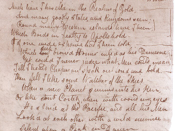 Much have I travell'd in the Realms of Gold,
And many goodly States, and Kingdoms seen;
Round many Western islands have I been,
Which Bards in fealty to Apollo hold.
Oft of one wide expanse had I been told,
Which Homer ruled as his Demesne:
Yet could I never judge what Men could mean,
Till I heard Chapman speak out loud, and bold.
Then felt I like some Watcher of the Skies
When a new Planet swims into his Ken,
Or like stout Cortez, when with eyes
He star'd at the Pacific, and all his Men
Look'd at each other with a wild surmise
Silent upon a Peak in Darien